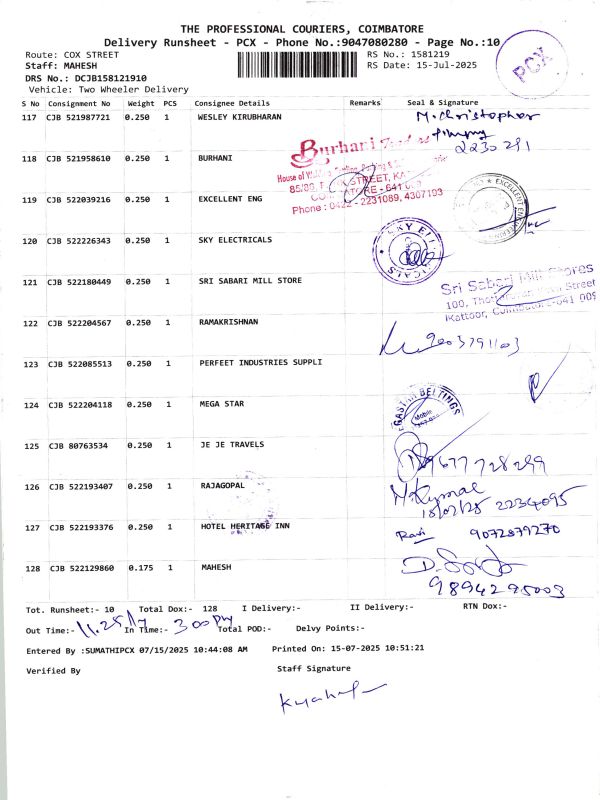 THE PROFESSIONAL COURIERS, COIMBATORE
Delivery Runsheet - PCX - Phone No.:9047080280 - Page No.:10
PCX
Route: COX STREET
RS No.: 1581219
Staff: MAHESH
RS Date: 15-Jul-2025
DRS No.: DCJB158121910
Vehicle: Two Wheeler Delivery
S No Consignment No Weight PCS Consignee Details Remarks Seal & Signature
117 CJB 521987721 0.250 1 WESLEY KIRUBHARAN M.Christopher
2230291
118 CJB 521958610 0.250 1 BURHANI
Burhani
House of
85/89, STREET,
COIMBATORE - 641
Phone : 0422 - 2231089, 4307193
119 CJB 522039216 0.250 1 EXCELLENT ENG EXCELLENT
120 CJB 522226343 0.250 1 SKY ELECTRICALS SKY
121 CJB 522180449 0.250 1 SRI SABARI MILL STORE
Sri Sabari Mill Stores
100, Street
Kattoor, Coimbatore-641 009
122 CJB 522204567 0.250 1 RAMAKRISHNAN
123 CJB 522085513 0.250 1 PERFEET INDUSTRIES SUPPLI
124 CJB 522204118 0.250 1 MEGA STAR MEGASTAR BELTINGS
Mobile
125 CJB 80763534 0.250 1 JE JE TRAVELS 9677728299
126 CJB 522193407 0.250 1 RAJAGOPAL
2234095
127 CJB 522193376 0.250 1 HOTEL HERITAGE INN Ravi 9072879270
128 CJB 522129860 0.175 1 MAHESH
9894295003
Tot. Runsheet:- 10 Total Dox:- 128 I Delivery:- II Delivery:- RTN Dox:-
Out Time:- 11.25 In Time:- 3 00 PM Total POD:- Delvy Points:-
Entered By :SUMATHIPCX 07/15/2025 10:44:08 AM Printed On: 15-07-2025 10:51:21
Verified By Staff Signature